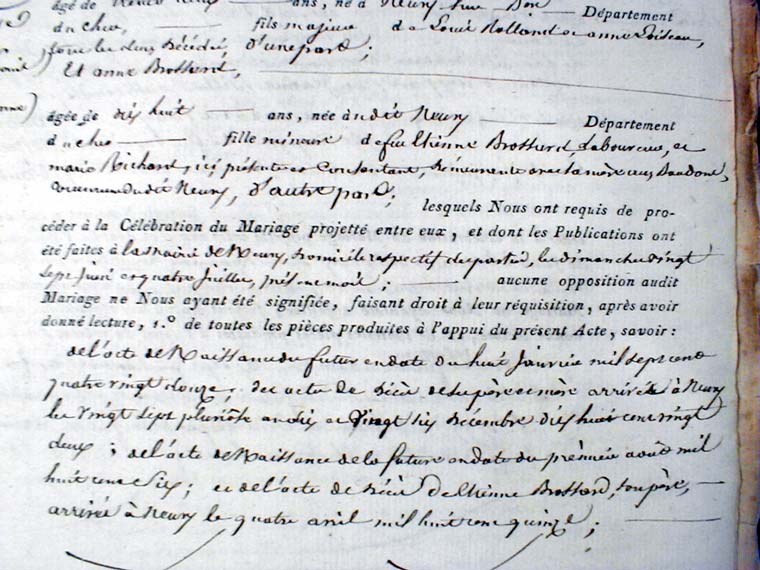 âgé de ans, né à Neury sur Don Département
du cher, fils majeur de Louis Rolland et anne Loiseau,
tous les deux Décédés, d'une part;
Et anne Brossard,
âgée de dix huit ans, née audit Neury Département
du cher fille mineure de feu Etienne Brossard, Laboureur, et
marie Richard, ici présente et Consentante, demeurante avec sa mère aux
commune dudit Neury, d'autre part;
lesquels Nous ont requis de pro-
céder à la Célébration du Mariage projetté entre eux, et dont les Publications ont
été faites à la mairie de Neury, domicile respectif des parties, les dimanches vingt
sept Juin et quatre Juillet, présent mois; aucune opposition audit
Mariage ne Nous ayant été signifiée, faisant droit à leur réquisition, après avoir
donné lecture, 1.º de toutes les pièces produites à l'appui du présent Acte, savoir:
de l'acte de Naissance du futur en date du huit Janvier mil sept cent
quatre vingt douze; des actes de décès de ses père et mère arrivés à Neury
les vingt sept pluviôse an dix et vingt six décembre dix huit cent vingt
deux; de l'acte de Naissance de la future en date du premier août mil
huit cent six; et de l'acte de décès d'Etienne Brossard, son père,
arrivé à Neury le quatre avril mil huit cent quinze;